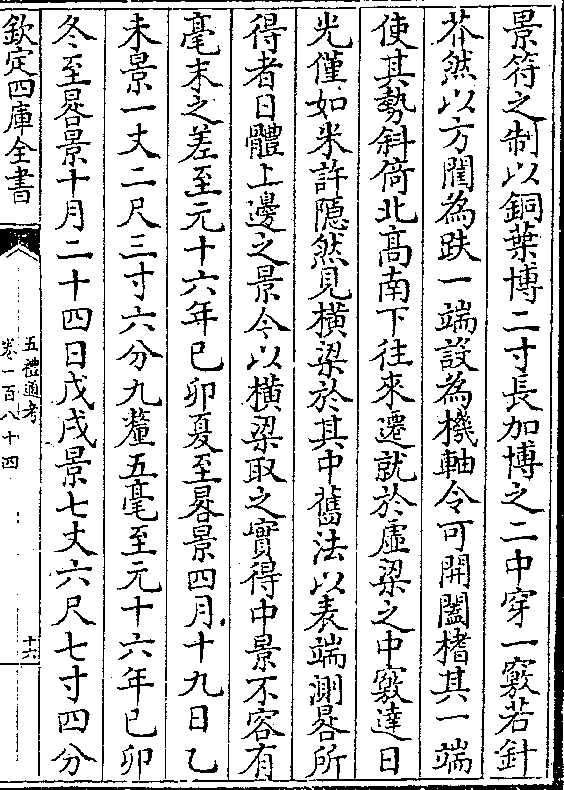 景符之制以銅葉博二寸長加博之二中穿一竅若針
芥然以方𨶒為趺一端設為機軸令可開闔榰其一端
使其勢斜倚北髙南下往來遷就於虛梁之中竅達日
光僅如米許隠然見橫梁於其中舊法以表端測晷所
得者日體上邊之景今以横梁取之實得中景不容有
毫末之差至元十六年己卯夏至晷景四月十九日乙
未景一丈二尺三寸六分九釐五毫至元十六年己卯
冬至晷景十月二十四日戊戌景七丈六尺七寸四分
欽定四庫全書
五禮通考
卷一百八十四
十六